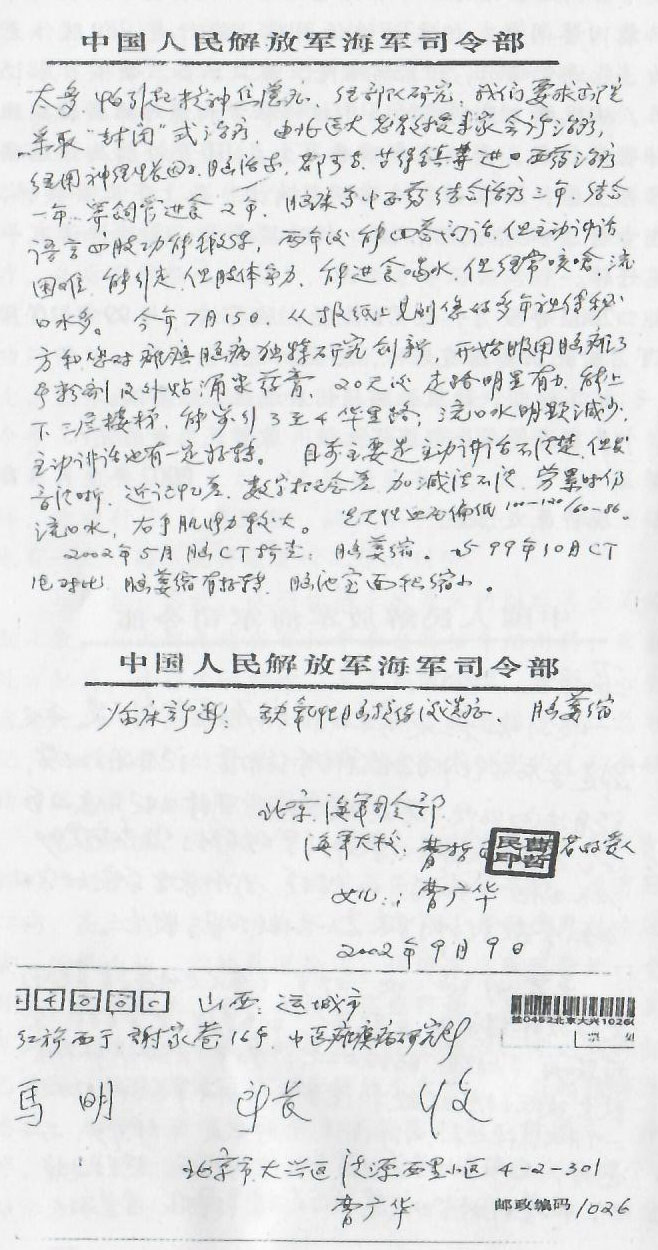 中国人民解放军海军司令部
引起精神 经部队研究，我们要求
采取“封闭”式治疗 由北医大老教授专家会诊治疗，
经用神经生长因子、脑活素、都可喜 等进口西药治疗
一年，鼻饲管进食2年，临床单中西药结合治疗三年，结合
语言 肢功能锻炼，两年后能回答问话，但主动讲话
困难，能行走，但肢体无力，能进食喝水，但经常呛咳，流
口水多。今年7月15日，从报纸上见到您的多年祖传秘
方和您对 脑病独特研究创新，开始服用脑
粉剂及外贴涌泉药膏，20天后走路明显有力，能上
下三层楼梯，能步行3至4华里路，流口水明显减少，
主动讲话也有一定好转。目前主要是主动讲话不清楚，但发
音清晰，近记忆差，数字概念差，加减法不清，劳累时仍
流口水，右手肌张力较大。 血压偏低100—120/60—86
2002年5月脑CT检查：脑萎缩。与99年10月CT
片对比，脑萎缩有好转，脑池室面积缩小。
中国人民解放军海军司令部
临床诊断：缺氧性脑损伤后遗症、脑萎缩
北京 海军司令部
海军大校，曹哲民
曹哲民印
女儿：曹广华
2002年9月9日
山西 运城市
红旗西 谢家巷16号 中医 病研究所
马明 所长 收
北京市大兴区 清源西里小区 4-2-301
曹广华 邮政编码 1026